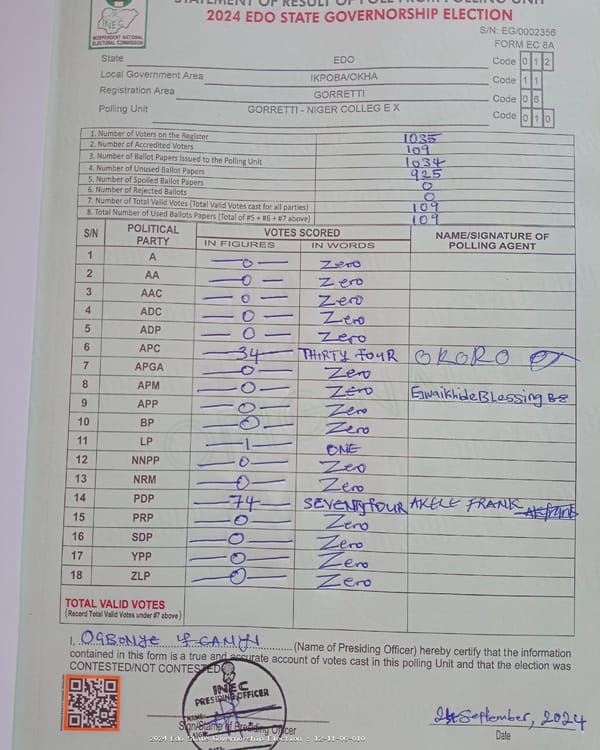 STATEMENT OF RESULT OF POLL FROM POLLING UNIT
2024 EDO STATE GOVERNORSHIP ELECTION
INEC
INDEPENDENT NATIONAL
ELECTORAL COMMISSION
S/N: EG/0002356
FORM EC 8A
State EDO Code 0 1 2
Local Government Area IKPOBA/OKHA Code 1 1
Registration Area GORRETTI Code 0 6
Polling Unit GORRETTI - NIGER COLLEG E X Code 0 1 0
1. Number of Voters on the Register 1035
2. Number of Accredited Voters 109
3. Number of Ballot Papers Issued to the Polling Unit 1034
4. Number of Unused Ballot Papers 925
5. Number of Spoiled Ballot Papers 0
6. Number of Rejected Ballots 0
7. Number of Total Valid Votes (Total Valid Votes cast for all parties) 109
8. Total Number of Used Ballots Papers (Total of #5 + #6 + #7 above) 109
S/N POLITICAL PARTY VOTES SCORED NAME/SIGNATURE OF POLLING AGENT
IN FIGURES IN WORDS
1 A 0 Zero
2 AA 0 Zero
3 AAC 0 Zero
4 ADC 0 Zero
5 ADP 0 Zero
6 APC 34 THIRTY FOUR OKORO
7 APGA 0 Zero
8 APM 0 Zero Egwaikhide Blessing
9 APP 0 Zero
10 BP 0 Zero
11 LP 1 ONE
12 NNPP 0 Zero
13 NRM 0 Zero
14 PDP 74 SEVENTY FOUR AKELE FRANK
15 PRP 0 Zero
16 SDP 0 Zero
17 YPP 0 Zero
18 ZLP 0 Zero
TOTAL VALID VOTES
(Record Total Valid Votes under #7 above)
I, (Name of Presiding Officer) hereby certify that the information
contained in this form is a true and accurate account of votes cast in this polling Unit and that the election was
CONTESTED/NOT CONTESTED
INEC
PRESIDING OFFICER
Sign/Stamp of Presiding Officer
21 September, 2024
Date
2024 Edo State Governorship Election - 12-11-06-010